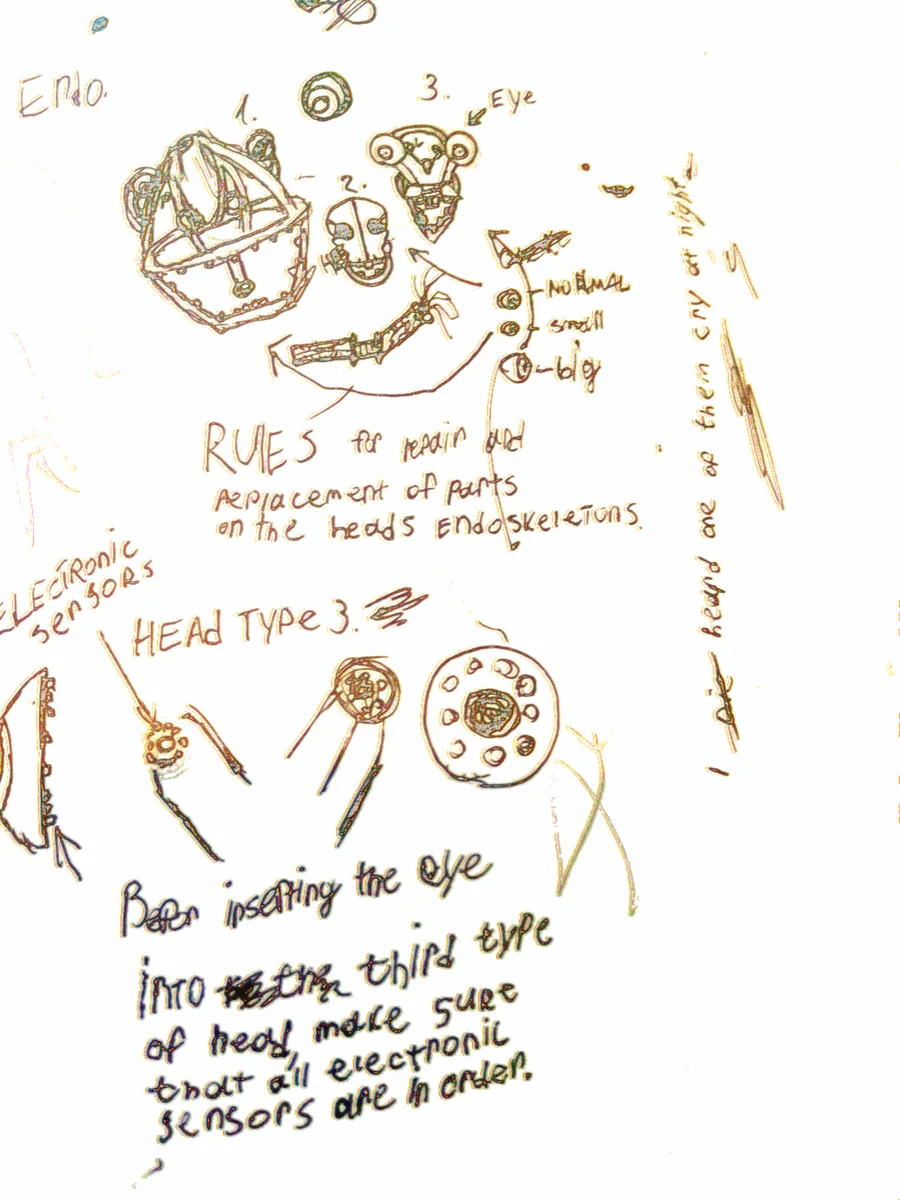 Endo.
1.
3.
Eye
2.
NORMAL
small
big
RULES for repair and
replacement of parts
on the heads ENDOSKELETONS.
ELECTRONIC
sensors
HEAD TYPE 3.
Befor inserting the eye
into the third type
of head, make sure
that all electronic
sensors are in order.
I heard one of them cry at night